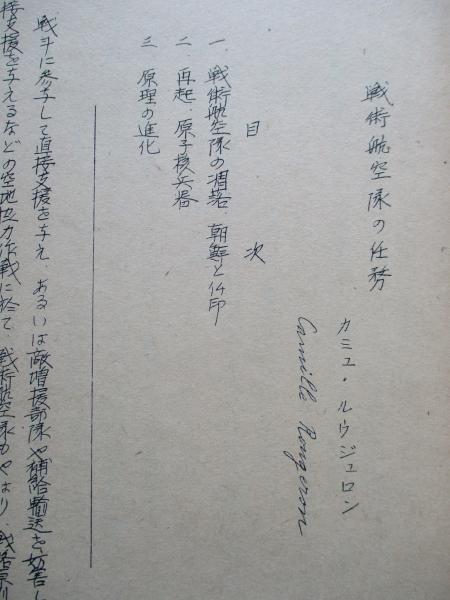 戦術航空隊の任務
カミュ・ルウジュロン
Camille Rougeron
目次
一 戦術航空隊の凋落、朝鮮と仏印
二 再起、原子核兵器
三 原理の進化
戦斗に参与して直接支援を与え、あるいは敵増援部隊や補給輸送を妨害し
接支援を与えるなどの空地協力作戦に於て、戦術航空隊もやはり、戦